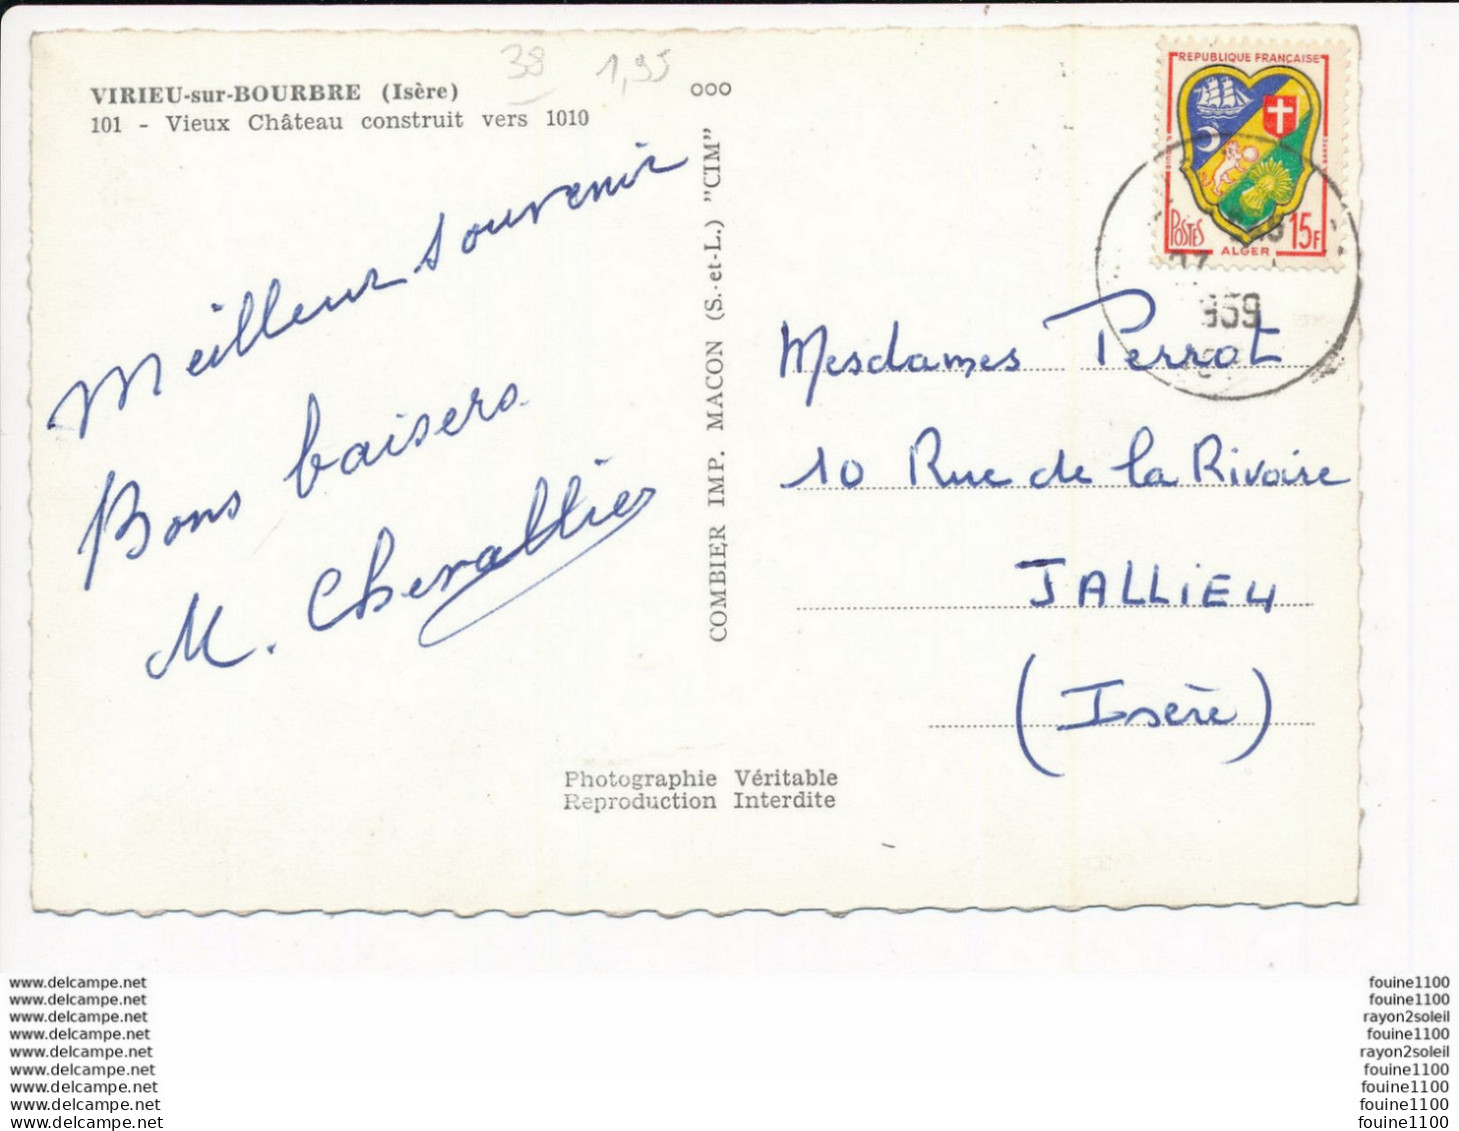 VIRIEU-sur-BOURBRE (Isère)
101 - Vieux Château construit vers 1010
38
1,95
ooo
Meilleur souvenir
Bons baisers.
M. Chevallier
COMBIER IMP. MACON (S.-et-L.) "CIM"
REPUBLIQUE FRANÇAISE
POSTES
15F
ALGER
959
Mesdames Perrot
10 Rue de la Rivoire
JALLIEU
(Isère)
Photographie Véritable
Reproduction Interdite
www.delcampe.net
www.delcampe.net
www.delcampe.net
www.delcampe.net
www.delcampe.net
www.delcampe.net
www.delcampe.net
www.delcampe.net
www.delcampe.net
fouine1100
fouine1100
rayon2soleil
fouine1100
rayon2soleil
fouine1100
fouine1100
fouine1100
fouine1100